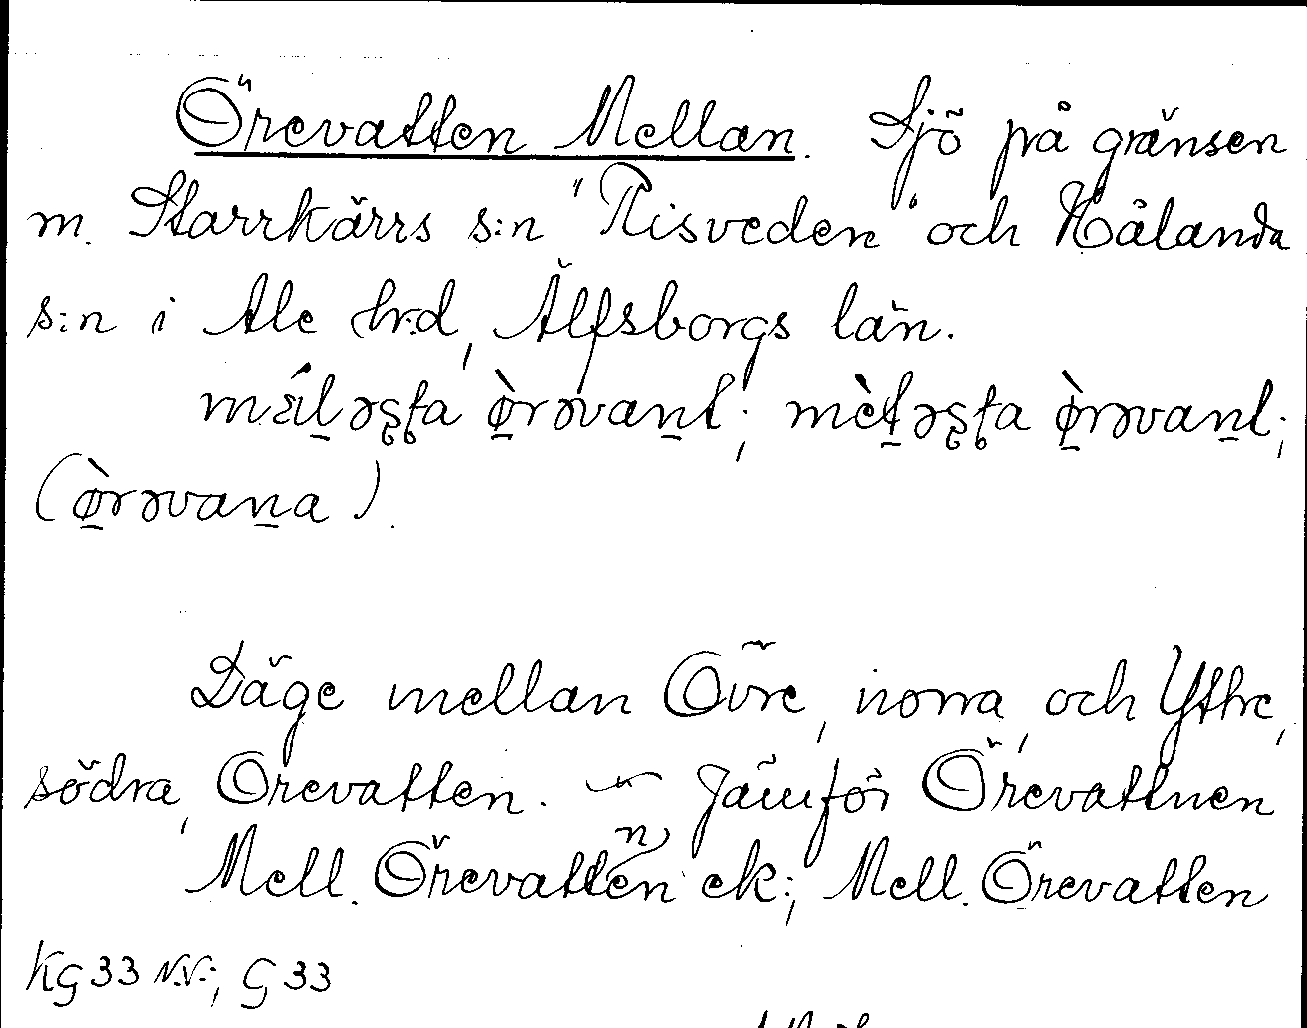 Örevatten Mellan. Sjö på gränsen
m. Starrkärrs s:n "Risveden" och Hålanda
s:n i Ale hrd, Älfsborgs län.
mǽl̠əʂʈa ø̠̀rəvan̠t; mèl̠əʂʈa ø̠̀rəvan̠t;
(ø̠̀rəvan̠a).
Läge mellan Övre, norra, och Yttre,
södra, Örevatten. — Jämför Örevattnen
Mell. Örevatten ek; Mell. Örevatten
KG 33 N.V.; G 33